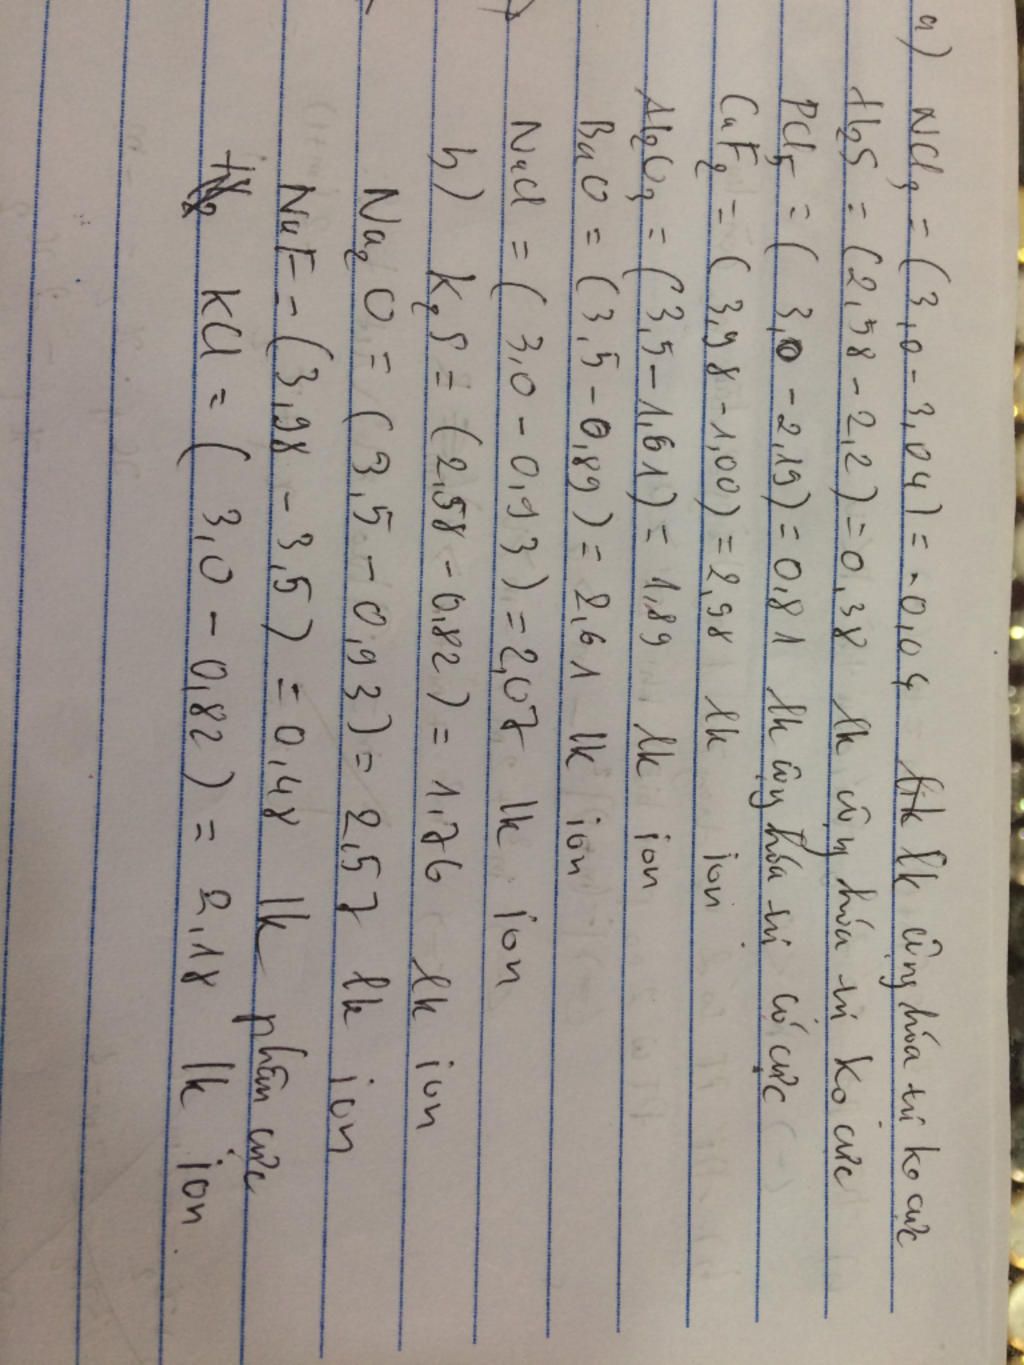 a) NCl3 = (3,0 - 3,04) = -0,04 lk cộng hóa trị ko cực
H2S = (2,58 - 2,2) = 0,38 lk cộng hóa trị ko cực
PCl5 = ( 3,0 - 2,19) = 0,81 lk cộng hóa trị có cực
CaF2 = ( 3,98 - 1,00) = 2,98 lk ion
Al2O3 = (3,5 - 1,61) = 1,89 lk ion
BaO = (3,5 - 0,89) = 2,61 lk ion
NaCl = ( 3,0 - 0,93) = 2,07 lk ion
b) K2S = (2,58 - 0,82) = 1,76 lk ion
Na2O = (3,5 - 0,93) = 2,57 lk ion
NaF = (3,98 - 3,5) = 0,48 lk phân cực
KCl = ( 3,0 - 0,82) = 2,18 lk ion